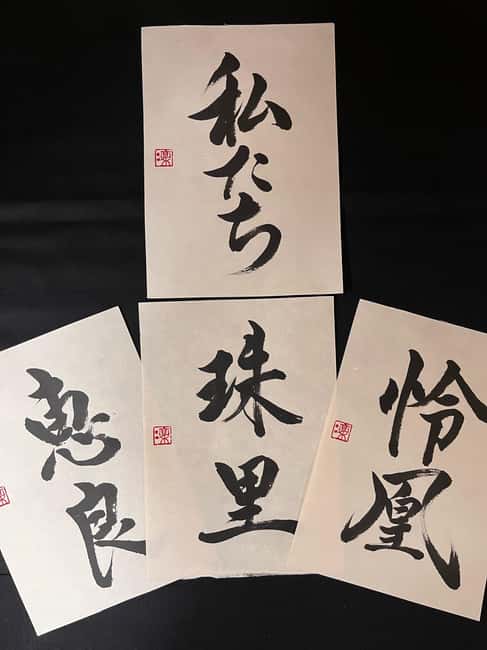 私たち
恵良
珠里
怜凰